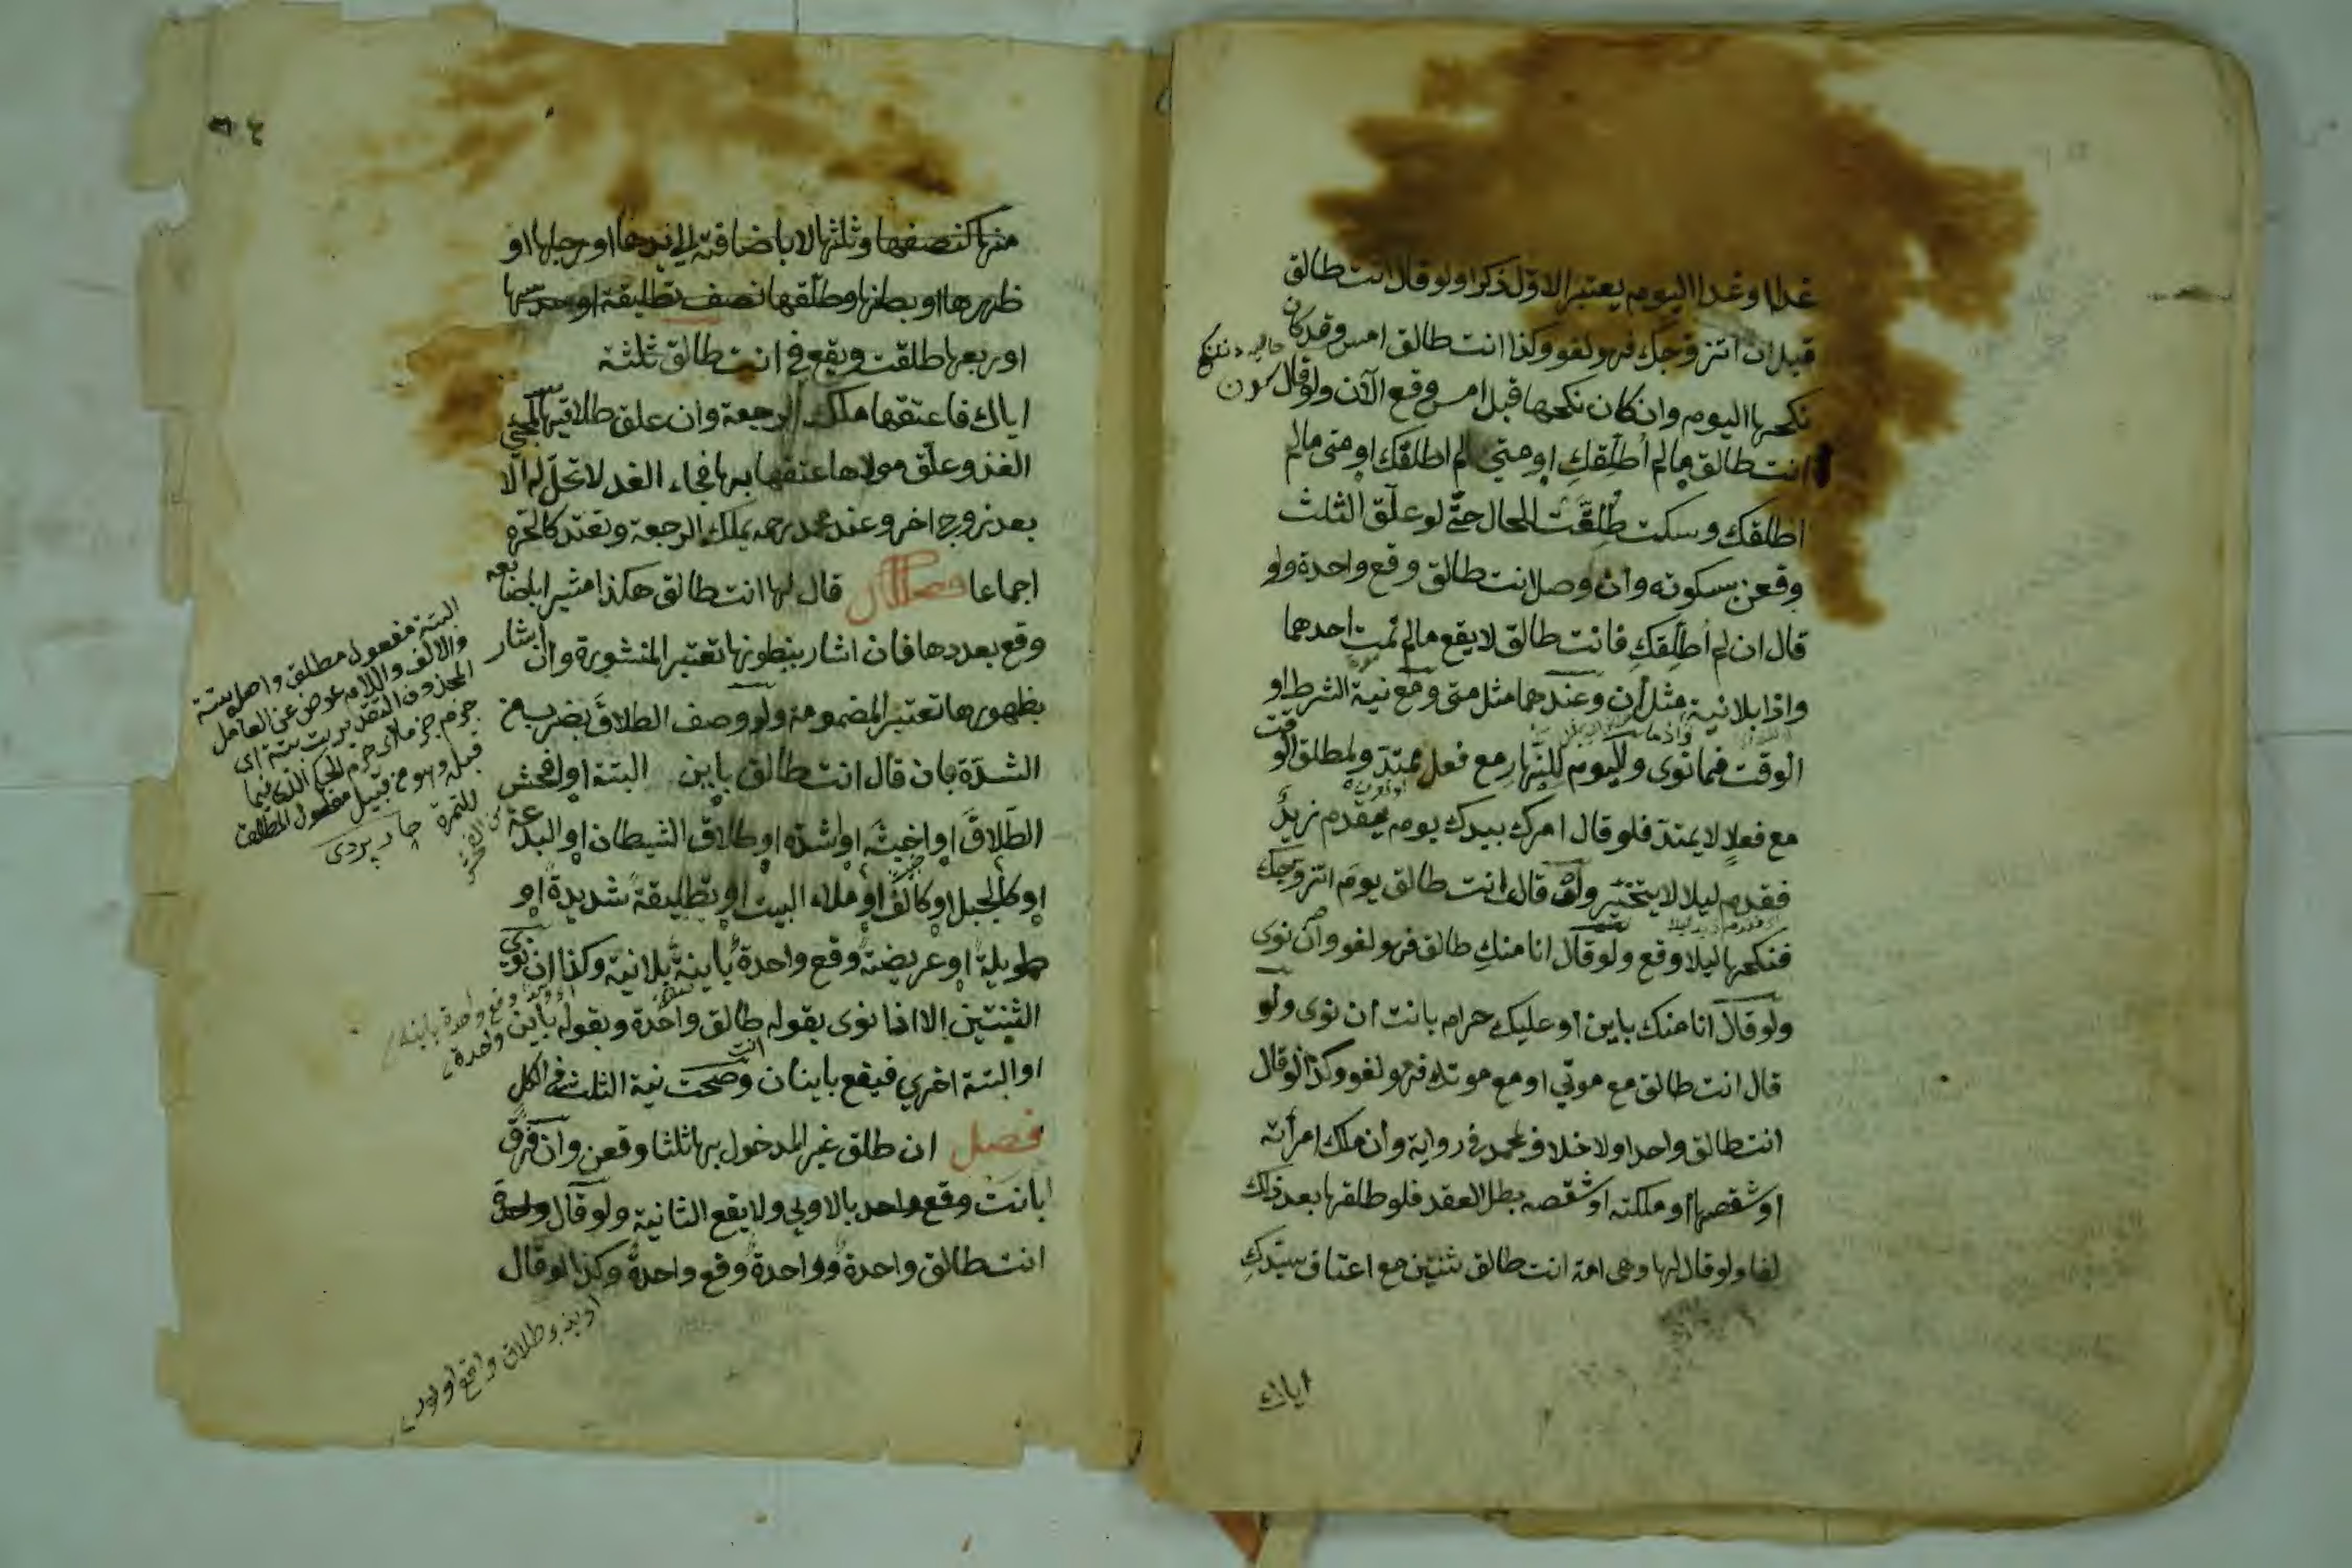 غدا وغدا اليوم يعتبر الاول ذكرا ولو قال انت طالق
قبل ان اتزوجك فهو لغو وكذا انت طالق امس وقد كان
نكحها اليوم وان كان نكحها قبل امس وقع الآن ولو قال
انت طالق مالم أطلقكِ او متي لم اطلقك او متى مالم
اطلقك وسكت طُلِّقَت للحال حتّى لو علّق الثلث
وقعن بسكوته وان وصل انت طالق وقع واحدة ولو
قال ان لم أطلِّقكِ فانت طالق لا يقع مالم تمت احدهما
واذا بلا نية مثل ان وعندهما مثل متى ومع نية الشرط او
الوقت فما نوى واليوم للنهار مع فعل ممتدّ ولمطلق الوقت
مع فعلٍ لا يمتدّ فلو قال امرك بيدك يوم يقدم زيدٌ
فقدم ليلا لا يتخيّر ولو قال انت طالق يوم اتزوجك
فنكحها ليلا وقع ولو قال انا منكِ طالق فهو لغو وان نوى
ولو قال انا منك باين او عليك حرام بانت ان نوى ولو
قال انت طالق مع موتي او مع موتك فهو لغو وكذا لو قال
انت طالق واحدا ولا خلاف لمحمد في رواية وان ملك امرأته
او شقصها او ملكته او شقصه بطل العقد فلو طلقها بعد ذلك
لغا ولو قال لها وهى امة انت طالق ثنتين مع اعتاق سيّدكِ
اياك
منها كنصفها وثلثها لا باضافته الى يدها او رجلها او
ظهرها او بطنها وطلّقها نصف تطليقة او سدسها
او ربعها طلقت ويقع في انت طالق ثلثة
اياك فاعتقها ملك الرجعة وان علق طلاقيها لمجئ
الغد وعلّق مولاها عتقها به فجاء الغد لا تحلّ له الّا
بعد زوج اخر وعند محمد رحمه يملك الرجعة وتعتد كالحرة
اجماعا فصل قال لها انت طالق هكذا مشيرا باصابعه
وقع بعددها فان اشار ببطونها تعتبر المنشورة وان اشار
بظهورها تعتبر المضمومة ولو وصف الطلاقَ بضرب من
الشدّة بان قال انت طالق باين البتة او افحش
الطلاقَ او اخبثه او اشدّه او طلاق الشيطان او البدعة
او كالجبل او كالف او ملاء البيت او تطليقةً شديدةً او
طويلةً او عريضةً وقع واحدةٌ باينةٌ بلا نية وكذا ان نوى
الثنتين الا اذا نوى بقوله طالق واحدة وبقوله باين واحدة
او البتة اخري فيقع باينان وصحت نية الثلث في الكل
فصل ان طلق غير المدخول بها ثلثا وقعن وان فرّق
بانت وقع واحد بالاولي ولا يقع الثانية ولو قال واحدة
انت طالق واحدةً وواحدةً وقع واحدةٌ وكذا لو قال
البتة مفعول مطلق واصل بتة
والالف واللام عوض عن العامل
المحذوف التقدير بت بتة اى
قبله وهو من قبيل مفعول المطلق